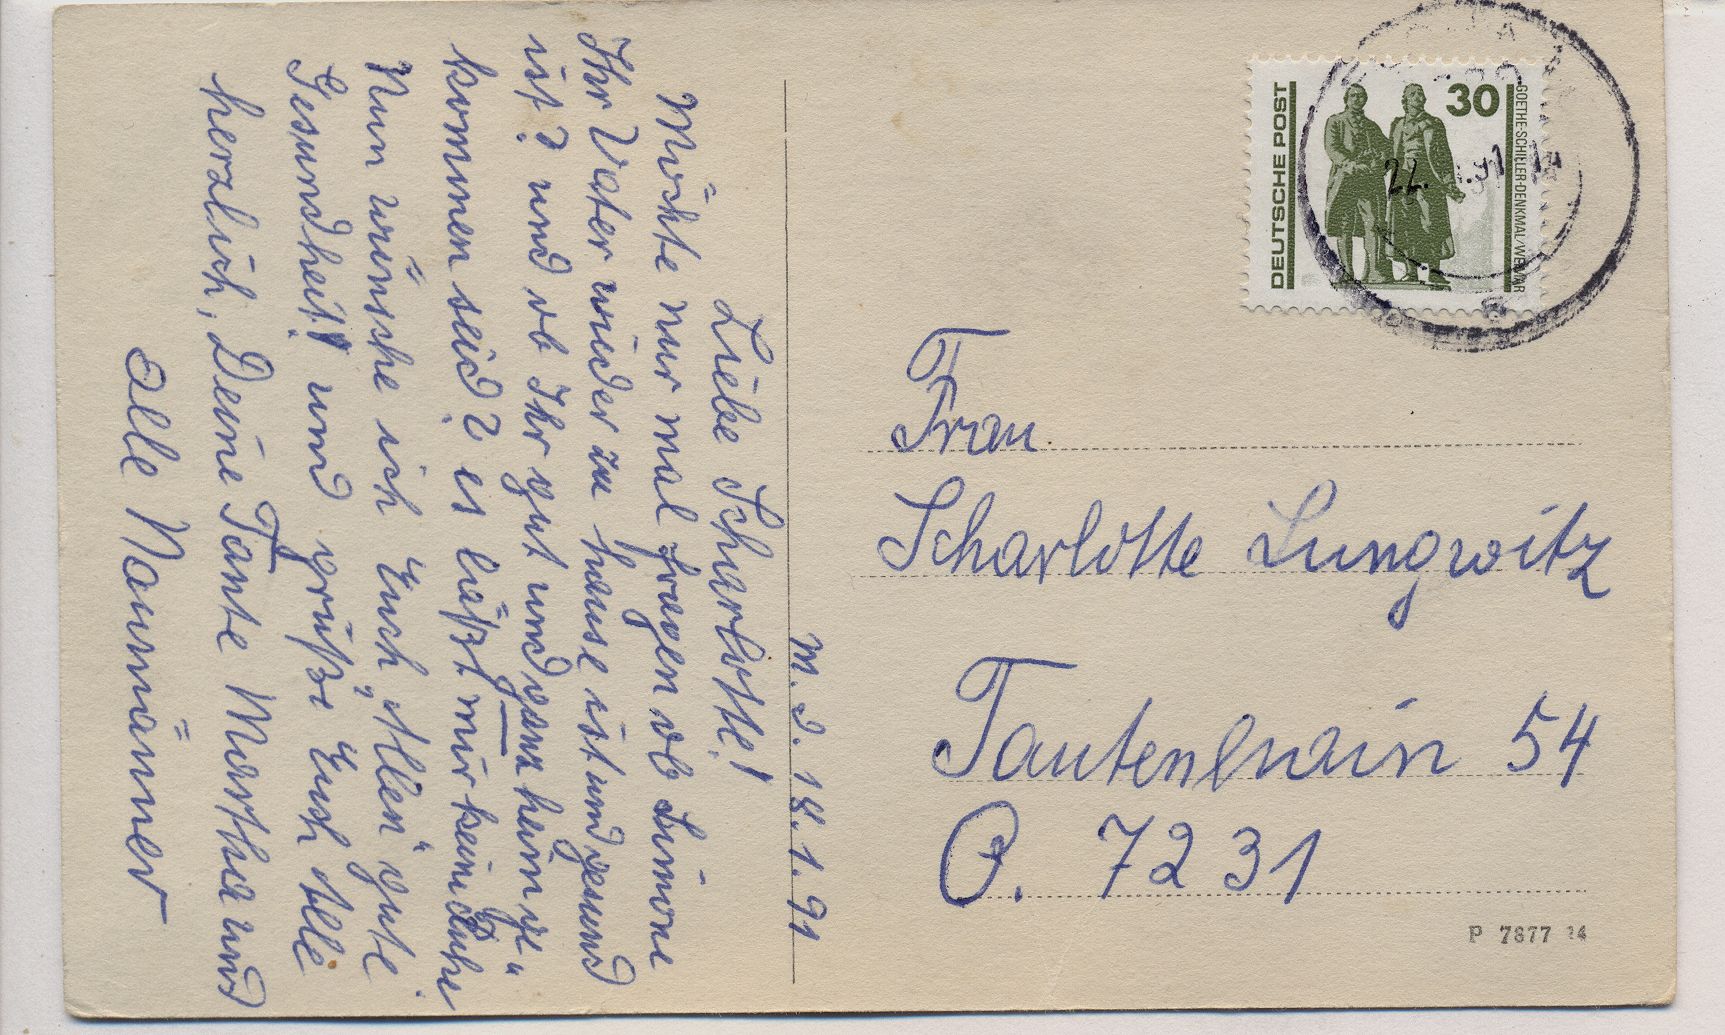 M. d. 18.1.91
Liebe Scharlotte!
Möchte nur mal fragen ob Simone
Ihr Vater wieder zu hause ist und gesund
ist? und ob Ihr gut und ganz heim ge"
kommen seid? es läßt mir keine Ruhe
Nun wünsche ich Euch "Allen" gute
Gesundheit! und grüße Euch Alle
herzlich, Deine Tante Martha und
alle Naumänner
DEUTSCHE POST
30
GOETHE-SCHILLER-DENKMAL/WEIMAR
22. .1.91
Frau
Scharlotte Lungwitz
Tautenhain 54
O. 7231
P 7877 14